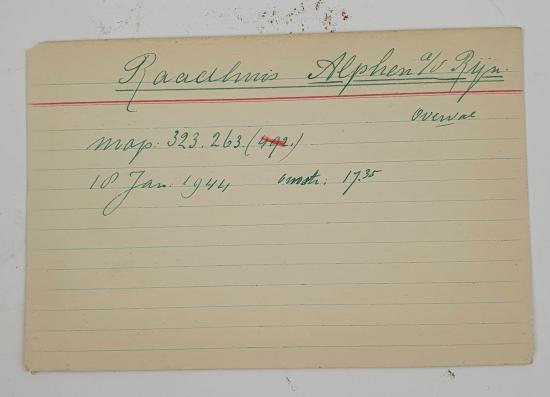 Raadhuis Alphen a/d Rijn.
Overval
map. 323.263. (492.)
18 Jan. 1944 omstr. 17.35